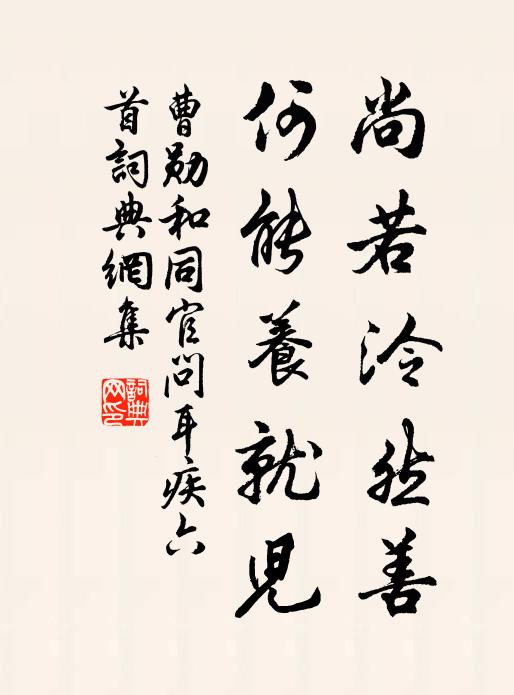 尚若泠然善
何能養就兒
曹勛和同官問耳疾六
首詞典網集
詞典
网印